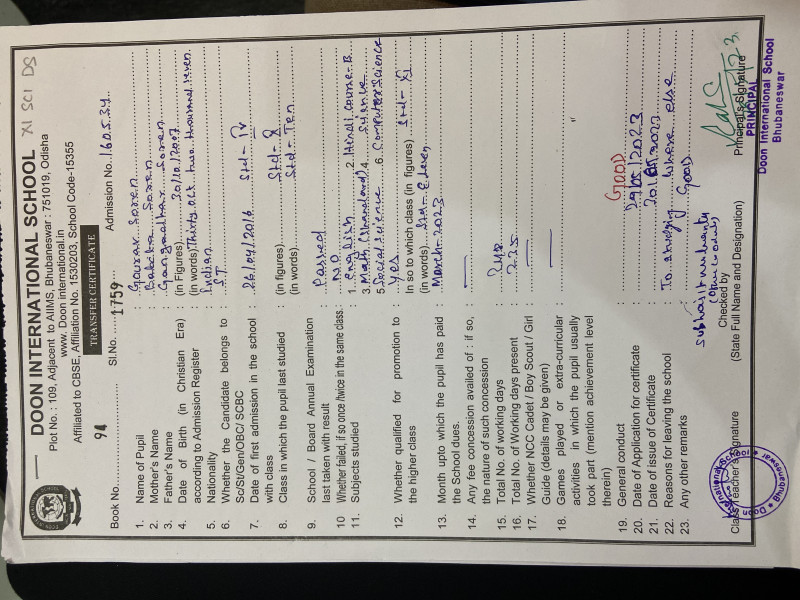 DOON INTERNATIONAL SCHOOL XI SCI DS
Plot No. : 109, Adjacent to AIIMS, Bhubaneswar : 751019, Odisha
www. Doon international.in
Affiliated to CBSE, Affiliation No. 1530203, School Code-15355
TRANSFER CERTIFICATE
Book No. 94 Sl.No. 1759 Admission No. 1605.34
1. Name of Pupil : Gourav Soren
2. Mother's Name : Babita Soren
3. Father's Name : Gangadhar Soren
4. Date of Birth (in Christian Era) : (in Figures) 30/10/2007
according to Admission Register (in words) Thirty oct two thousand seven
5. Nationality : Indian
6. Whether the Candidate belongs to : ST
Sc/St/Gen/OBC/ SCBC
7. Date of first admission in the school 26/04/2016 Std - IV
with class
8. Class in which the pupil last studied (in figures) Std - X
(in words) Std - Ten
9. School / Board Annual Examination Passed
last taken with result
10 Whether failed, if so once /twice in the same class : NO
11. Subjects studied : 1. English 2. Hindi course-B
3. Math (Standard) 4. Science
5. Social science 6. Computer Science
12. Whether qualified for promotion to : Yes
the higher class In so to which class (in figures) Std - XI
(in words) Std - Eleven
13. Month upto which the pupil has paid : March-2023
the School dues.
14. Any fee concession availed of : if so, :
the nature of such concession
15. Total No. of working days : 248
16. Total No. of Working days present : 225
17. Whether NCC Cadet / Boy Scout / Girl
Guide (details may be given)
18. Games played or extra-curricular
activities in which the pupil usually
took part (mention achievement level
therein)
19. General conduct : GOOD
20. Date of Application for certificate : 29/05/2023
21. Date of issue of Certificate :
22. Reasons for leaving the school : To studying where else
23. Any other remarks : Good
Class Teacher's Signature Checked by Principal's Signature
(State Full Name and Designation) PRINCIPAL
Doon International School
Bhubaneswar
Doon International School
Bhubaneswar